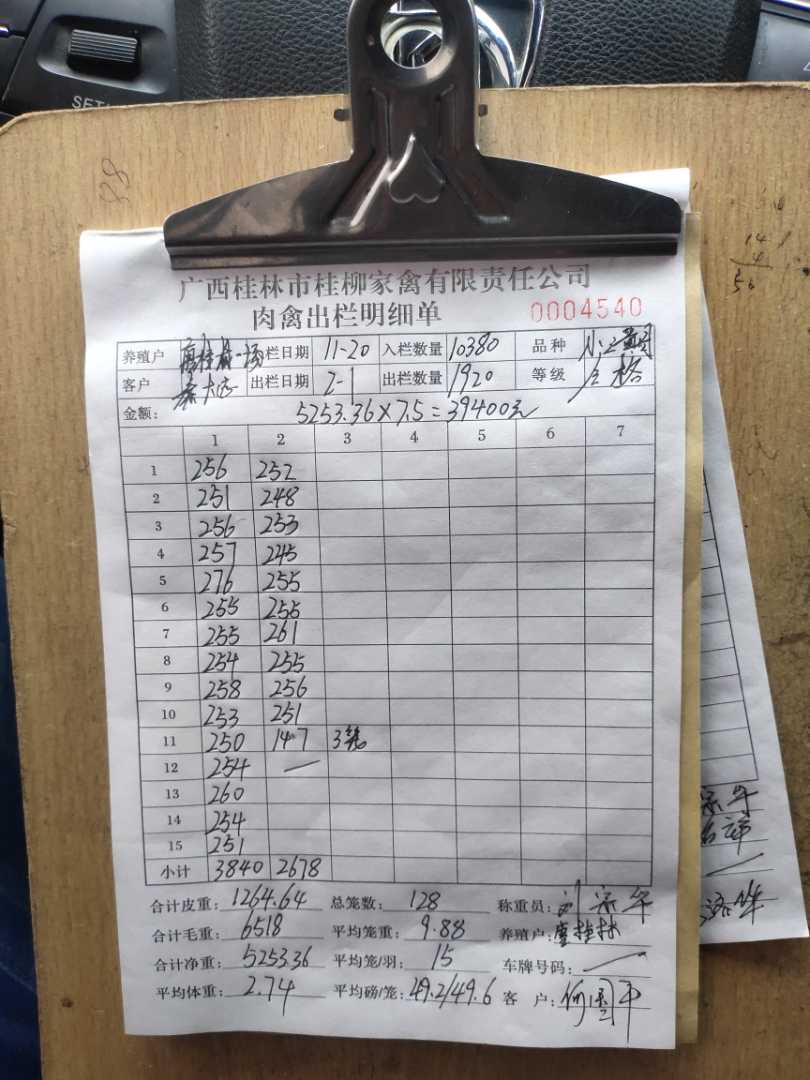 SET
88
14
4
56
广西桂林市桂柳家禽有限责任公司
肉禽出栏明细单 0004540
养殖户 栏日期 11-20 入栏数量 10380 品种
客户 出栏日期 2-1 出栏数量 1920 等级 合格
金额: 5253.36×7.5=39400元
1 2 3 4 5 6 7
1 256 252
2 251 248
3 256 253
4 257 245
5 276 255
6 255 255
7 255 261
8 254 255
9 258 256
10 253 251
11 250 147 3笼
12 254 —
13 260
14 254
15 251
小计 3840 2678
合计皮重: 1264.64 总笼数: 128 称重员:
合计毛重: 6518 平均笼重: 9.88 养殖户: 廖桂林
合计净重: 5253.36 平均笼/羽: 15 车牌号码: —
平均体重: 2.74 平均磅/笼: 49.2/49.6 客 户: 何国平